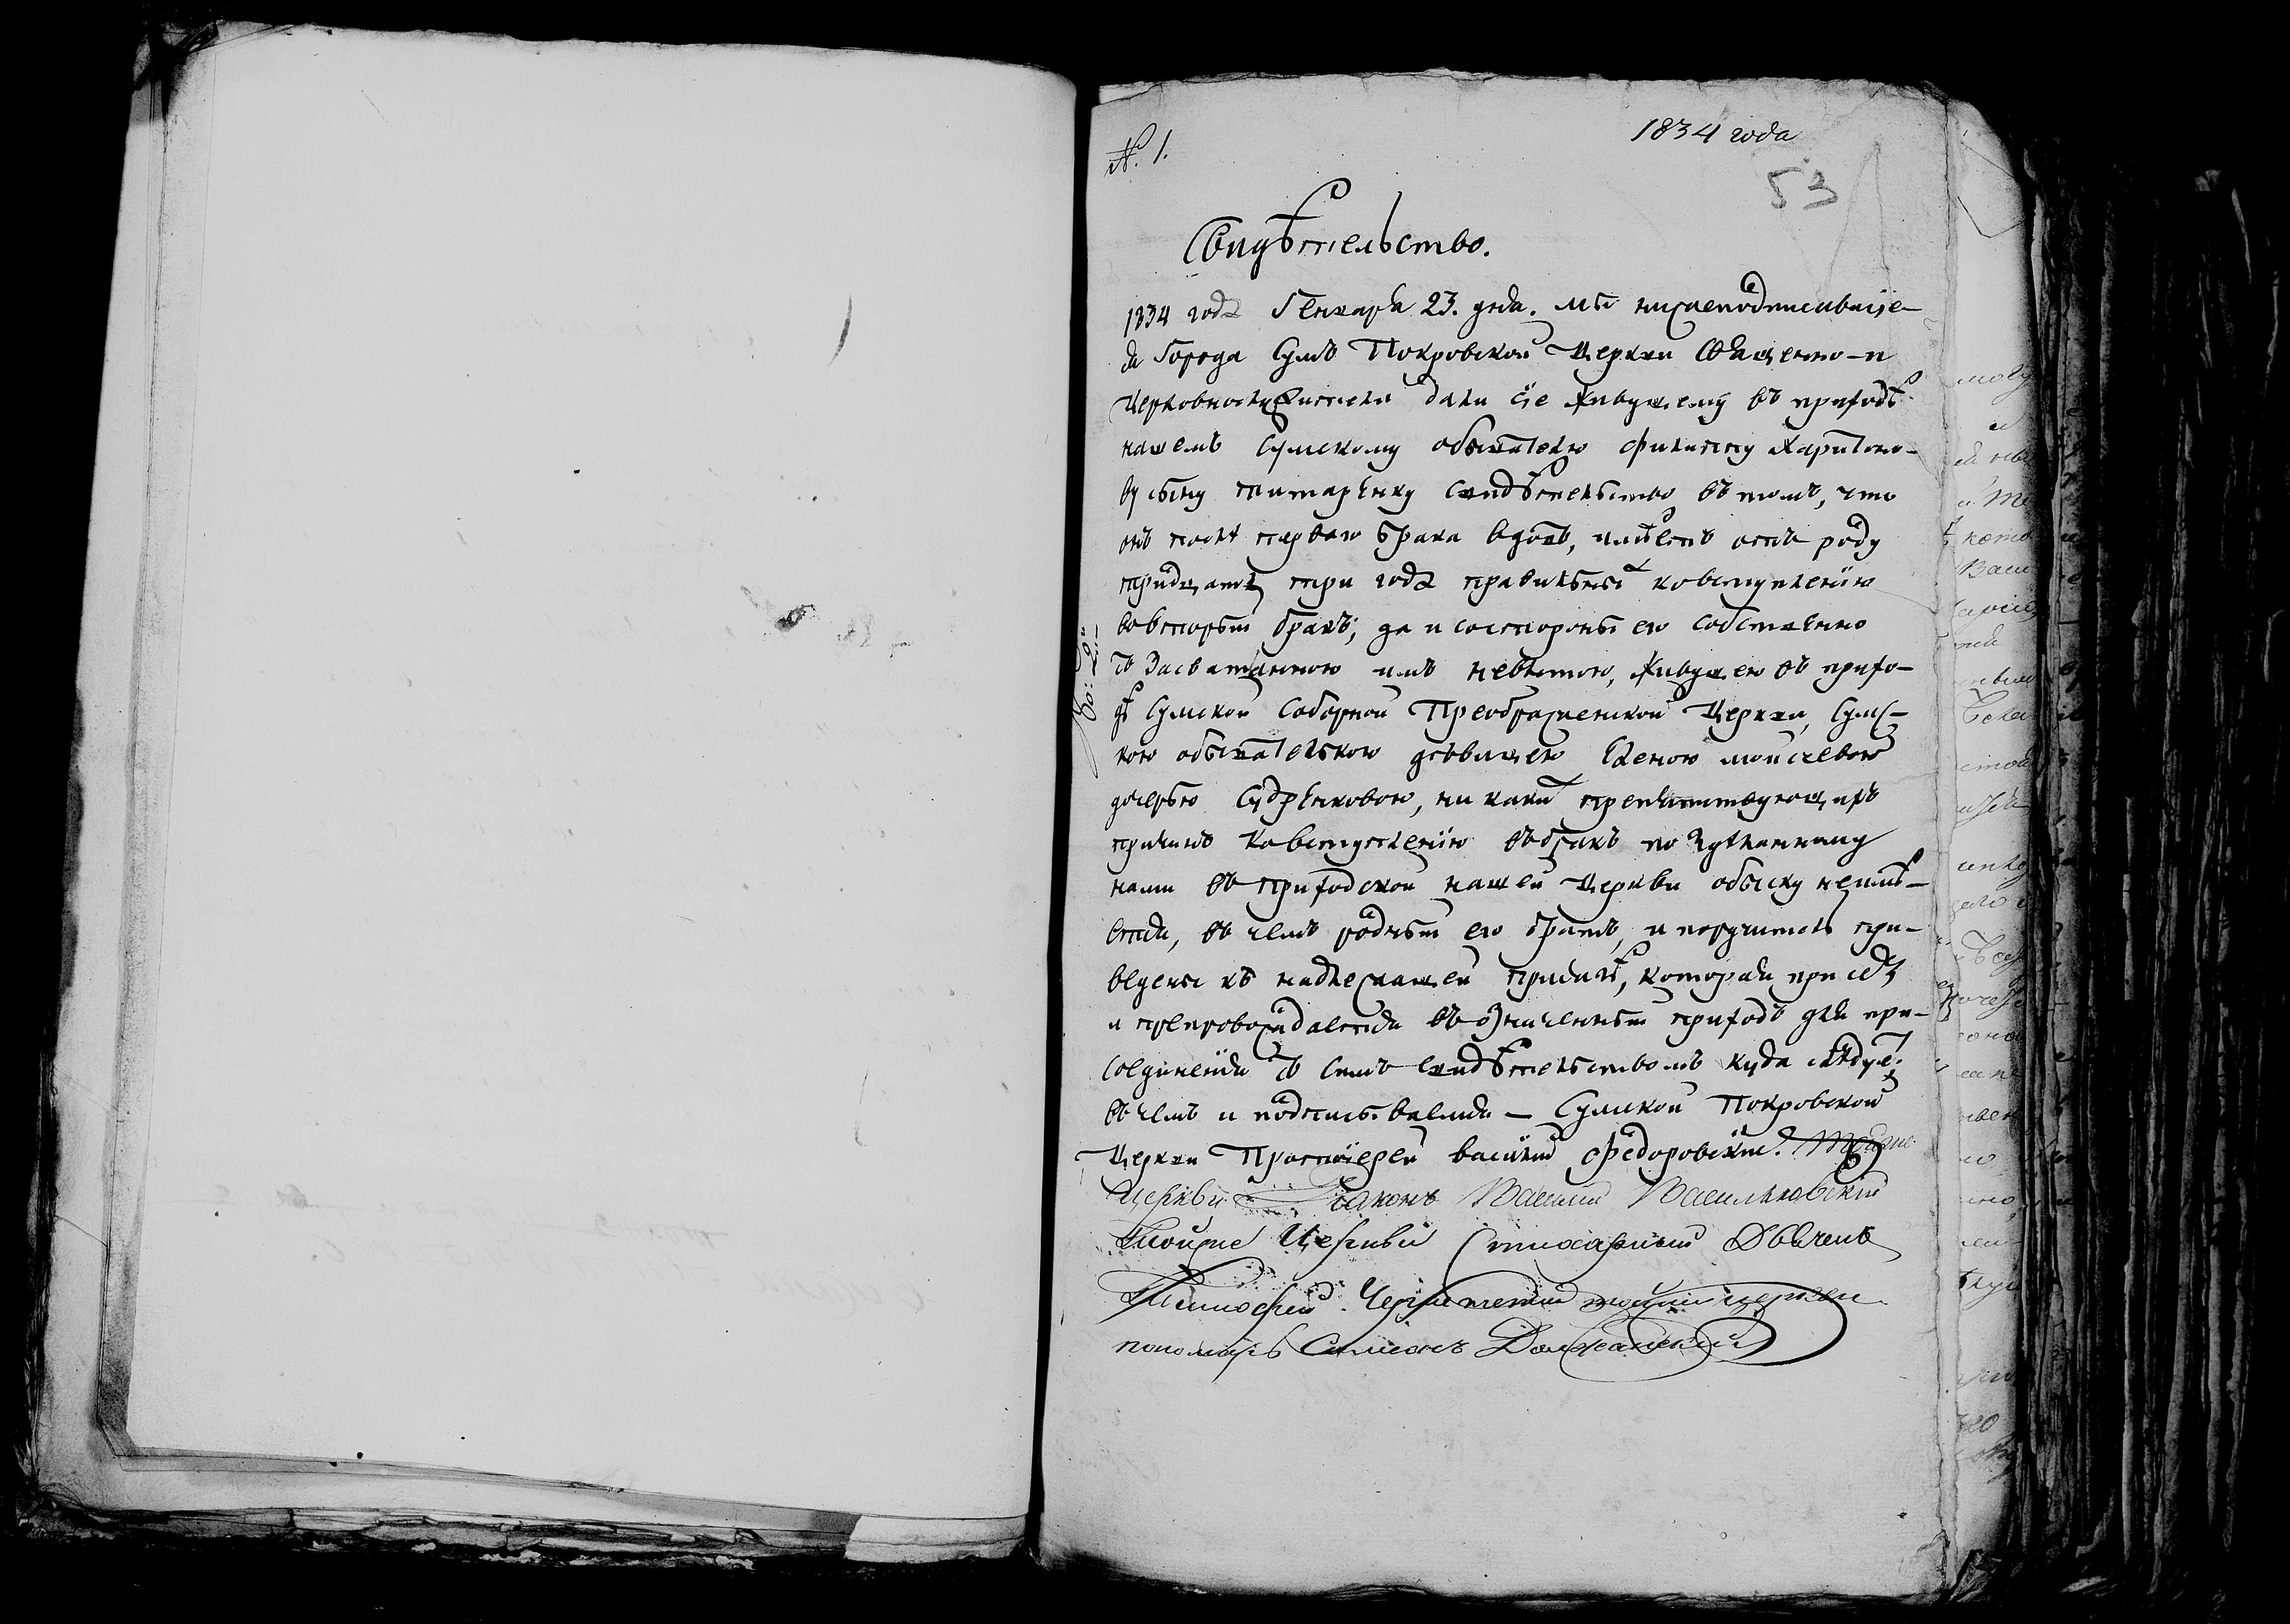 №. 1.
1834 года
53
Свидѣтельство.
1834 года Генваря 23. дня. мы нижеподписавшіе-
ся Города Сумъ Покровской Церкви Священно-и
Церковнослужители дали сіе живущему въ приходѣ
нашемъ Сумскому обывателю Филиппу Харитоно-
ву сыну свидѣтельство въ томъ, что
онъ послѣ перваго брака вдовъ, имѣетъ отъ роду
тридцать три года правильны ковступленію
вовторый бракъ; да и состороны его собственно
съ Засватанною имъ невѣстою, живущею въ прихо-
дѣ Сумской Соборной Преображенской Церкви, Сумс-
кою обывательскою дѣвицею Еленою моисеевою
дочерью, ни какихъ препятствующихъ
причинъ Ковступленію въбракъ по Учиненному
нами въ приходской нашей Церкви обыску неимѣ-
ется, въ чемъ родный его братъ, и поручитель при-
ведены къ надлежащей присягѣ, которая при семъ
и препровождается въ означенный приходъ для при-
соединенія съ симъ свидѣтельствомъ куда слѣдуетъ;
въ чемъ и подписываемся — Сумской Покровской
Церкви Протоіерей василій федоровскій. Тояже
церкви Діаконъ Василій Васильковскій
Тоиже Церкви Стихарный Дьячекъ
Тимофей тойже церкви
пономарь Симеонъ